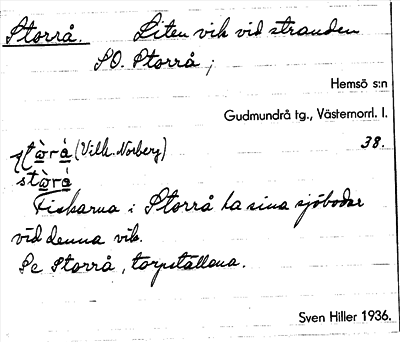 Storrå. Liten vik vid stranden
SO. Storrå ;
Hemsö s:n
Gudmundrå tg., Västernorrl. l.
(Vilh. Norberg) 38.
Fiskarna i Storrå ha sina sjöbodar
vid denna vik.
Se Storrå, torpställena.
Sven Hiller 1936.